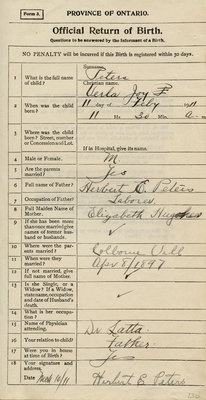 Form 3.
PROVINCE OF ONTARIO.
Official Return of Birth.
Questions to be answered by the Informant of a Birth.
NO PENALTY will be incurred if this Birth is registered within 30 days.
Surname,
1 What is the full name of child? Peters
Christian name.
Joy F
2 When was the child born? 11 day of Feby 1911
11 Hr. 30 Min. a.m
3 Where was the child born? Street, number or Concession and Lot.
If in Hospital, give its name.
4 Male or Female. M
5 Are the parents married? Yes
6 Full name of Father? Herbert E. Peters
7 Occupation of Father? Laborer
8 Full Maiden Name of Mother. Elizabeth Hughes
9 If she has been more than once married give names of former husband or husbands.
10 Where were the parents married? Colborne Vill
11 When were they married? Apr 8/1897
12 If not married, give full name of Mother.
13 Is she Single, or a Widow? If a Widow, state name, occupation and date of Husband's death.
14 What is her occupation?
15 Name of Physician attending. Dr Latta
16 Your relation to child? Father
17 Were you in house at time of Birth? Yes
18 Your signature and address,
Date, Herbert E Peters